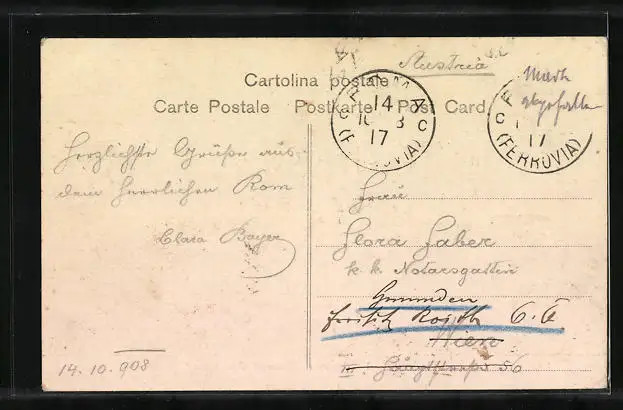 Austria
Cartolina postale
Carte Postale Postkarte Post Card
ROMA
14
10 8
17
C C
(FERROVIA)
C
17
(FERROVIA)
Mark
abgefallen
Herzlichste Grüße aus
dem herrlichen Rom
Clara Bayer
Frau
Flora Faber
k. k. Notarsgattin
Gmunden
O. Ö.
Wien
III. 56
14. 10. 908